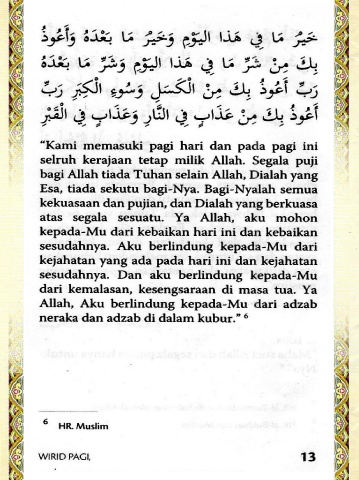 خَيْرُ مَا فِي هَذَا الْيَوْمِ وَخَيْرُ مَا بَعْدَهُ وَأَعُوذُ
بِكَ مِنْ شَرِّ مَا فِي هَذَا الْيَوْمِ وَشَرِّ مَا بَعْدَهُ
رَبِّ أَعُوذُ بِكَ مِنَ الْكَسَلِ وَسُوءِ الْكِبَرِ رَبِّ
أَعُوذُ بِكَ مِنْ عَذَابٍ فِي النَّارِ وَعَذَابٍ فِي الْقَبْرِ
“Kami memasuki pagi hari dan pada pagi ini
selruh kerajaan tetap milik Allah. Segala puji
bagi Allah tiada Tuhan selain Allah, Dialah yang
Esa, tiada sekutu bagi-Nya. Bagi-Nyalah semua
kekuasaan dan pujian, dan Dialah yang berkuasa
atas segala sesuatu. Ya Allah, aku mohon
kepada-Mu dari kebaikan hari ini dan kebaikan
sesudahnya. Aku berlindung kepada-Mu dari
kejahatan yang ada pada hari ini dan kejahatan
sesudahnya. Dan aku berlindung kepada-Mu
dari kemalasan, kesengsaraan di masa tua. Ya
Allah, Aku berlindung kepada-Mu dari adzab
neraka dan adzab di dalam kubur.” 6
6 HR. Muslim
WIRID PAGI, 13